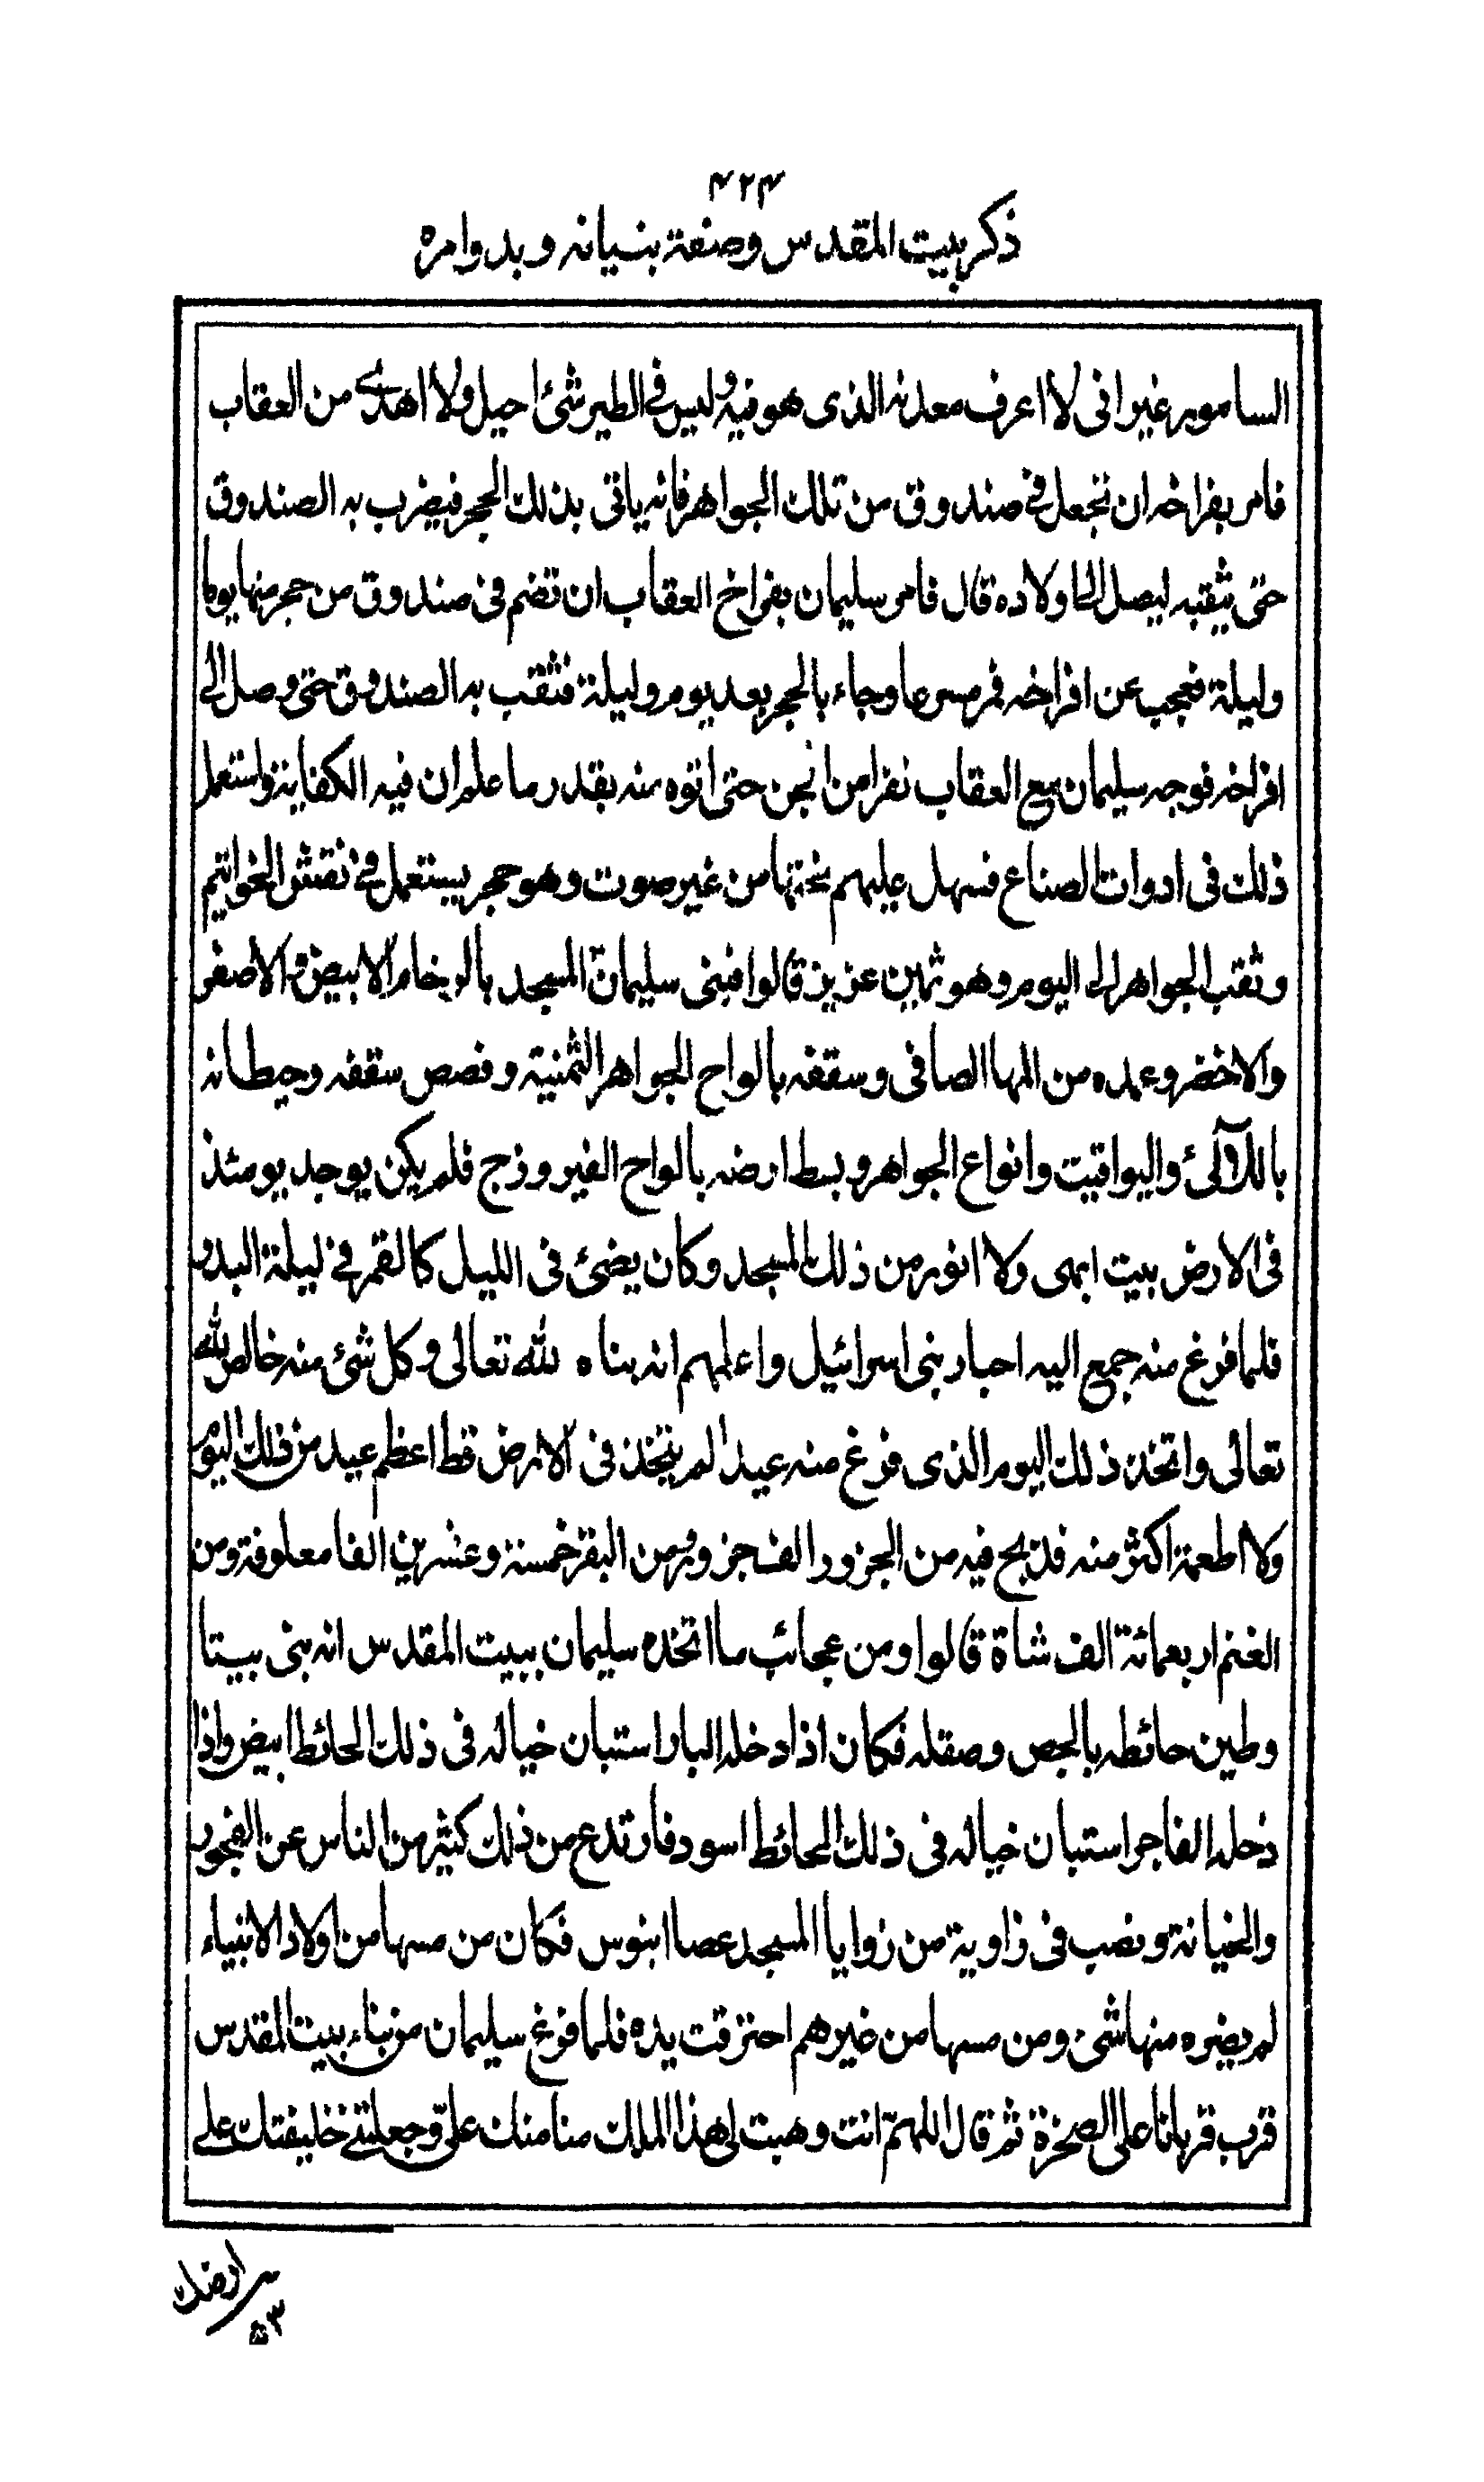 ۴۲۴
ذكر بيت المقدس وصنعة بنيانه و بدوامره
السامور غير انى لا اعرف معدنه الذى هو فيه وليس فى الطير شئ احيل ولا اهدى من العقاب
فامر بفراخه ان تجعل فى صندوق من تلك الجواهر فانه ياتى بذلك الحجر فيضرب به الصندوق
حتى يثقبه ليصل الى اولاده قال فامر سليمان بفراخ العقاب ان تضم فى صندوق من حجر منها يوما
وليلة فعجب عن افراخه فمر مسرعا وجاء بالحجر بعد يوم وليلة فثقب به الصندوق حتى وصل الى
افراخه فوجه سليمان مع العقاب نفرا من الجن حتى اتوه منه بقدر ما علم ان فيه الكفاية واستعمل
ذلك فى ادوات الصناع فسهل عليهم نحتها من غير صوت وهو حجر يستعمل فى نقش الخواتيم
وثقب الجواهر الى اليوم وهو ثمين عزيز قالوا فبنى سليمان المسجد بالرخام الابيض والاصفر
والاخضر وعمده من المها الصافى وسقفه بالواح الجواهر الثمنية وفصص سقفه وحيطانه
باللآلئ واليواقيت وانواع الجواهر وبسط ارضه بالواح الفيروزج فلم يكن يوجد يومئذ
فى الارض بيت ابهى ولا انور من ذلك المسجد وكان يضئ فى الليل كالقمر فى ليلة البدر
فلما فرغ منه جمع اليه احبار بنى اسرائيل واعلمهم انه بناه لله تعالى وكل شئ منه خالص لله
تعالى واتخذ ذلك اليوم الذى فرغ منه عيدا لم يتخذ فى الارض قط اعظم عيد من ذلك اليوم
ولا اطعمة اكثر منه فذبح فيه من الجزور الف جزور ومن البقر خمسة وعشرين الفا معلوفة ومن
الغنم اربعمائة الف شاة قالوا ومن عجائب ما اتخذه سليمان ببيت المقدس انه بنى بيتا
وطين حائطه بالجص وصقله فكان اذا دخله البار استبان خياله فى ذلك الحائط ابيض واذا
دخله الفاجر استبان خياله فى ذلك الحائط اسود فارتدع من ذلك كثير من الناس عن الفجور
والخيانة ونصب فى زاوية من زوايا المسجد عصا ابنوس فكان من مسها من اولاد الانبياء
لم يضره منها شئ ومن مسها من غيرهم احترقت يده فلما فرغ سليمان من بناء بيت المقدس
قرب قربانا على الصخرة ثم قال اللهم انت وهبت لى هذا الملك منا منك على وجعلتنى خليفتك على
ارضك
۵۳